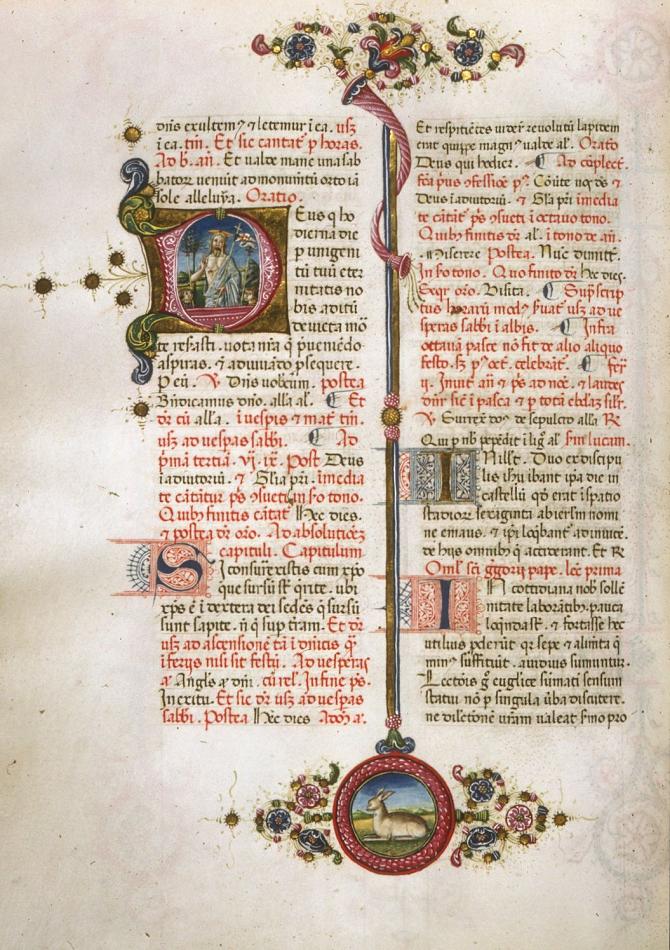 dn̄s exultem⁊ ⁊ letemur ī ea. usq̄
ī ea. tm̄. Et sic cantat̄ p horas.
Ad b. an̄. Et valde mane una sab
bator veniūt ad monumētū orto iā
sole alleluya. Oratio.
Deus q ho
dierna die
p unigeni
tū tuū eter
nitatis no
bis aditū
devicta mo
te reserasti. vota nr̄a q̄ p̄veniēdo
aspiras. ⁊ adiuvādo psequere.
P eu. ℣. Dn̄s vobiscum. postea
Bn̄dicamus dn̄o. alla al. ¶ Et
dr̄ cū all'a. ī vesp̄is ⁊ mat̄ tm̄.
usq̄ ad vesp̄as sabbi. ¶ Ad
p̄mā tertiā. vj. ix. Post Deus
ī adiutoriū. ⁊ Gl'ia p̄ri. īmedia
te cātātur ps
Quib finitis cātat̄ Hec dies.
⁊ postea dr̄ oro. Ad absolutiōez
capituli. Capitulum
Si consurrexistis cum xp̄o
que sursū st̄ q̄rite. ubi
xp̄s ē ī dextera dei sedēs q̄ sursū
sunt sapite. n̄ q̄ sup t̄ram. Et dr̄
usq̄ ad ascensionē tā ī dn̄icis q̄
ī ferijs nisi sit festū. Ad vesp̄as
a. Angl's at̄ dn̄i. cū rel. In fine ps.
In exitu. Et sic dr̄ usq̄ ad vesp̄as
sabbi. Postea Hec dies
Et respiciētes viderūt revolutū lapidem
erat quippe magn⁹ valde al. Oratio
Deus qui hodier. ¶ Ad cōplet̄.
Cōv̄te nos ds̄ ⁊
Deus ī adiutoriū. ⁊ Gl'ia p̄ri īmedia
te cātāt̄ ps̄ ī octavo tono.
Quib finitis dr̄ al. ī tono de an̄.
Miserere Postea. Nūc dimitt̄.
In fo tono. Quo finito dr̄ Hec dies.
Seqr̄ oro. Visita. ¶ Sup̄scrip
tus horarū mod⁹ s̄vat̄ usq̄ ad ve
speras sabbi ī albis. ¶ Infra
octavā pasce nō fit de alio aliquo
festo. sꝫ p⁹ oct̄. celebrāt̄. ¶ fer̄
ij. Invit̄ an̄ ⁊ ps̄ ad noc̄. ⁊ laudes
dn̄r sic̄ ī pasca ⁊ p totā ebdāꝫ sil'r.
℣. Surrex̄ dn̄s de sepulcro alla ℟
Qui p nob̄ pepēdit ī lig° al' Sm̄ lucam.
In illo t̄. Duo ex discipu
lis ih̄u ibant ip̄a die in
castellū qd̄ erat ī spatio
stadior sexaginta ab ier̄lm nomi
ne emaus. ⁊ ip̄i loq̄bant̄ ad invicē.
de hijs omnib⁹ q̄ acciderant. Et ℟
Oml' sc̄i g̊gorij pape. lec̄ prima
In cottidiana nob̄ sollē
nitate laborātib⁹. pauca
loq̄nda st̄. ⁊ fortasse hec
utilius p̄derūt q̄r sepe ⁊ alimēta q̄
min⁹ sufficiūt. avidius sumuntur.
Lectōis g° euglice sūmati sensum
statui nō p singula v̄ba discutere.
ne dilectōnē vr̄am valeat s̄mo pro